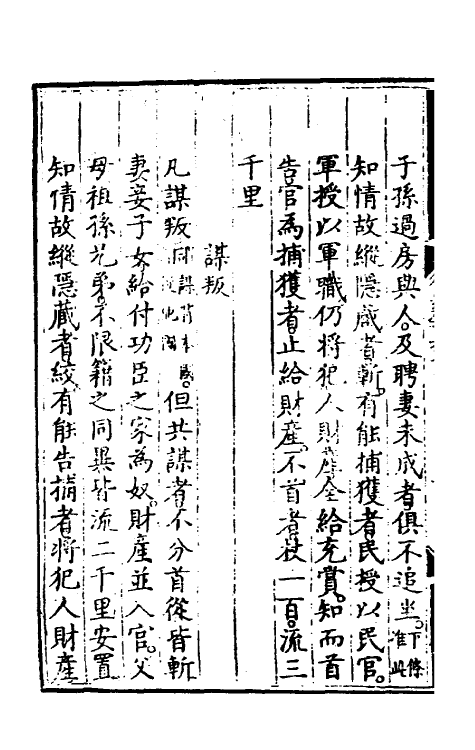 子孫過房與人。及聘妻未成者俱不追坐。下條准此
知情故縱隱藏者斬。有能捕獲者民授以民官。
軍授以軍職仍將犯人財產全給充賞。知而首
告官為捕獲者止給財產。不首者杖一百。流三
千里
謀叛
凡謀叛謂謀背本國。但共謀者不分首從皆斬
妻妾子女給付功臣之家為奴。財產並入官。父
母祖孫兄弟。不限籍之同異皆流二千里安置
知情故縱隱藏者絞。有能告捕者將犯人財產